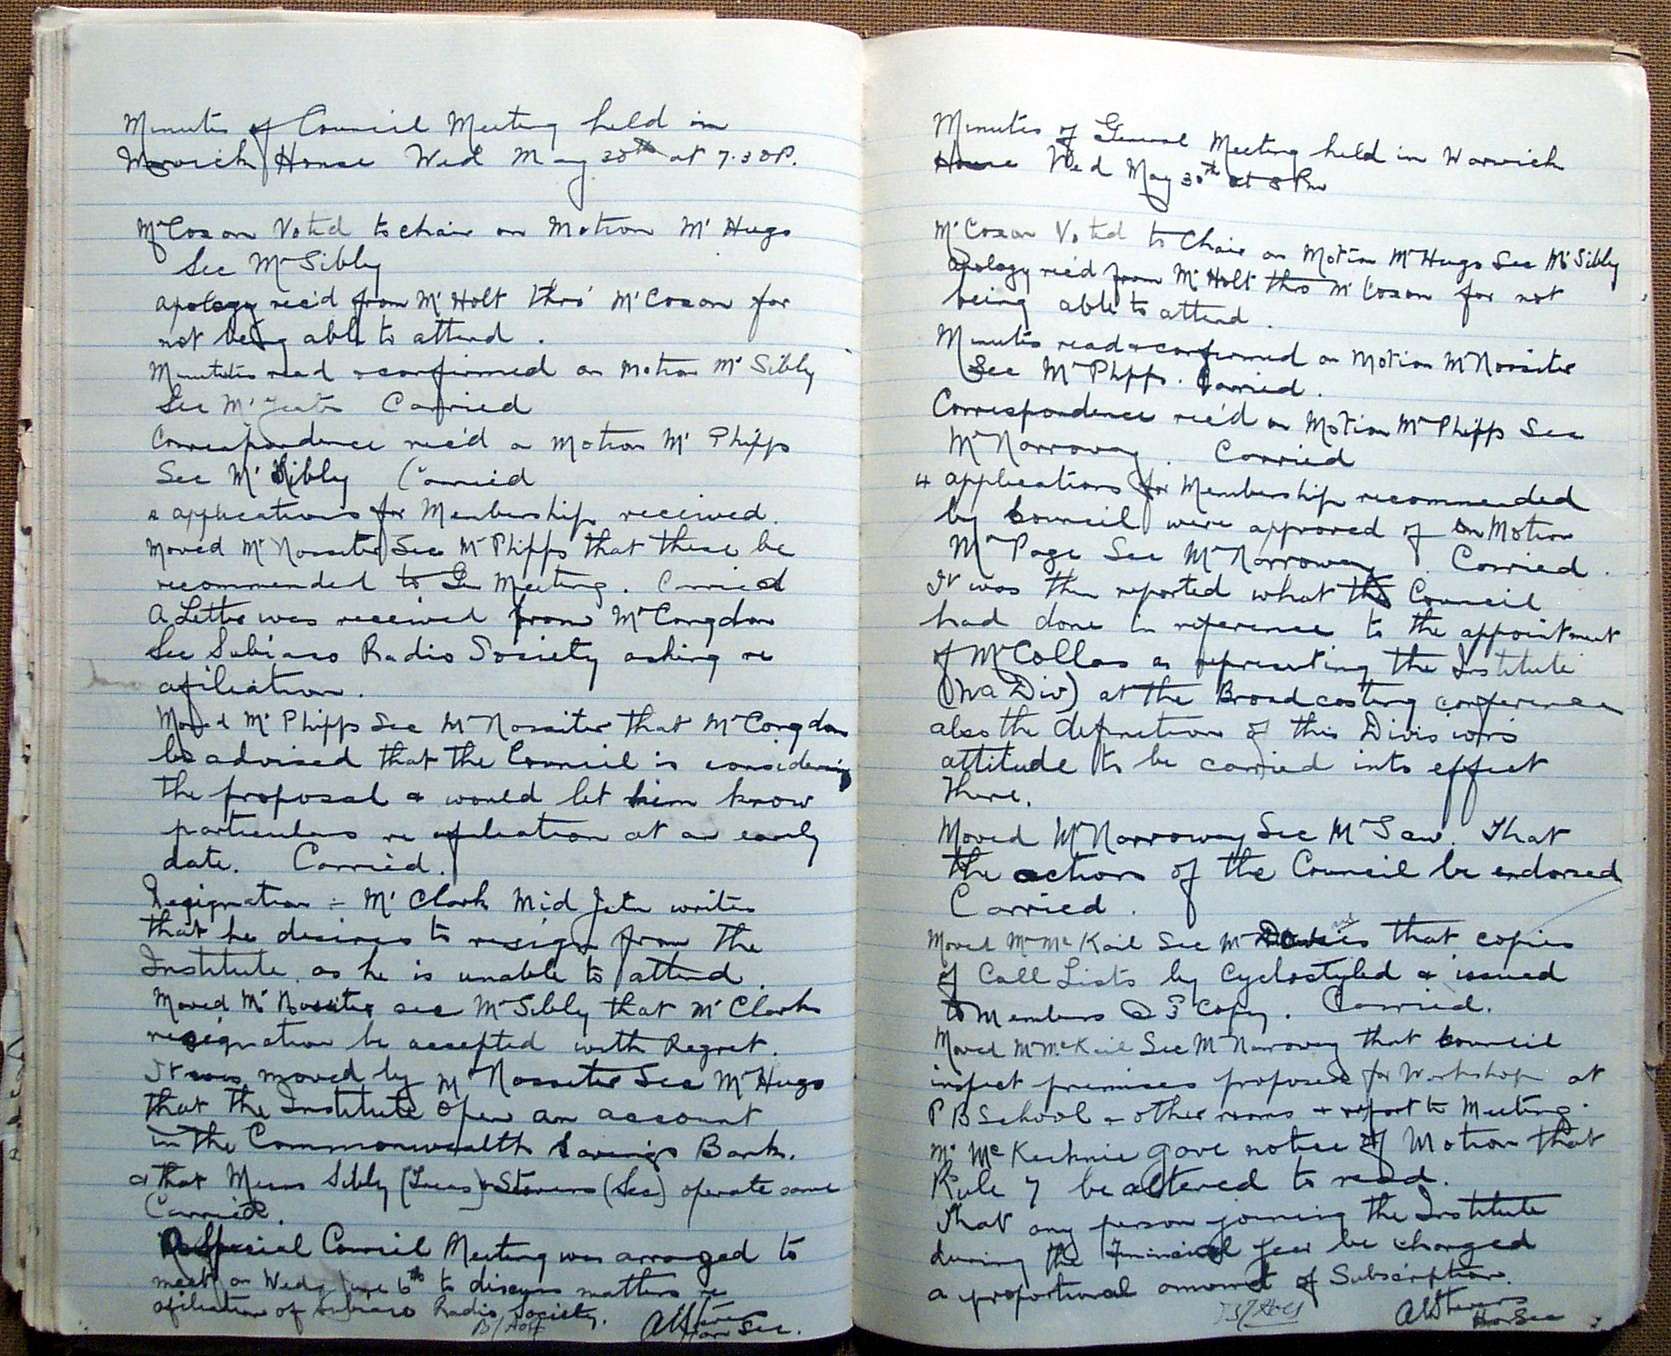 Minutes of Council Meeting held in
Warwick House Wed May 30th at 7.30P.
Mr Coxon Voted to chair on Motion Mr Hugo
Sec Mr Sibly
apology rec'd from Mr Holt thro' Mr Coxon for
not being able to attend.
Minutes read & confirmed on Motion Mr Sibly
Sec Mr Carried
Correspondence rec'd on Motion Mr Phipps
Sec Mr Sibly Carried
applications for Membership received.
Moved Mr Nossiter Sec Mr Phipps that these be
recommended to Gen Meeting. Carried
A Letter was received from Mr Congdon
Sec Subiaco Radio Society asking re
afiliation.
Moved Mr Phipps Sec Mr Nossiter that Mr Congdon
be advised that the Council is considering
the proposal & would let him know
particulars re afiliation at an early
date. Carried.
Resignation :- Mr Clark Mid Jctn writes
that he desires to resign from the
Institute as he is unable to attend.
Moved Mr Nossiter sec Mr Sibly that Mr Clarks
resignation be accepted with Regret.
It was moved by Mr Nossiter Sec Mr Hugo
that the Institute open an account
in the Commonwealth Savings Bank.
& that Messrs Sibly (Treas) & Stevens (Sec) operate same
Carried.
A Special Council Meeting was arranged to
meet on Wedy June 6th to discuss matters re
afiliation of Subiaco Radio Society.
Hon Sec.
Minutes of General Meeting held in Warwick
House Wed May 30th at 8 Pm
Mr Coxon Voted to Chair on Motion Mr Hugo Sec Mr Sibly
apology rec'd from Mr Holt thro Mr Coxon for not
being able to attend.
Minutes read & confirmed on Motion Mr Nossiter
Sec Mr Phpps. Carried.
Correspondence rec'd on Motion Mr Phipps Sec
Mr Narroway. Carried
4 applications for Membership recommended
by Council were approved of on Motion
Mr Page Sec Mr Narroway. Carried.
It was then reported what the Council
had done in reference to the appointment
of Mr Collas as representing the Institute
(Wa Div) at the Broadcasting conference
also the definition of this Division's
attitude to be carried into effect
there.
Moved Mr Narroway Sec Mr Saw. That
the action of the Council be endorsed
Carried.
Moved Mr McKail Sec Mr Davies that copies
of Call Lists by Cyclostyled & issued
to Members @ 3d Copy. Carried.
Moved Mr McKail Sec Mr Narroway that Council
inspect premises proposed for Workshop at
P B School & other rooms & report to Meeting.
Mr McKechnie gave notice of Motion that
Rule 7 be altered to read.
That any person joining the Institute
during the Financial Year be charged
a proportional amount of Subscription.
Hon Sec